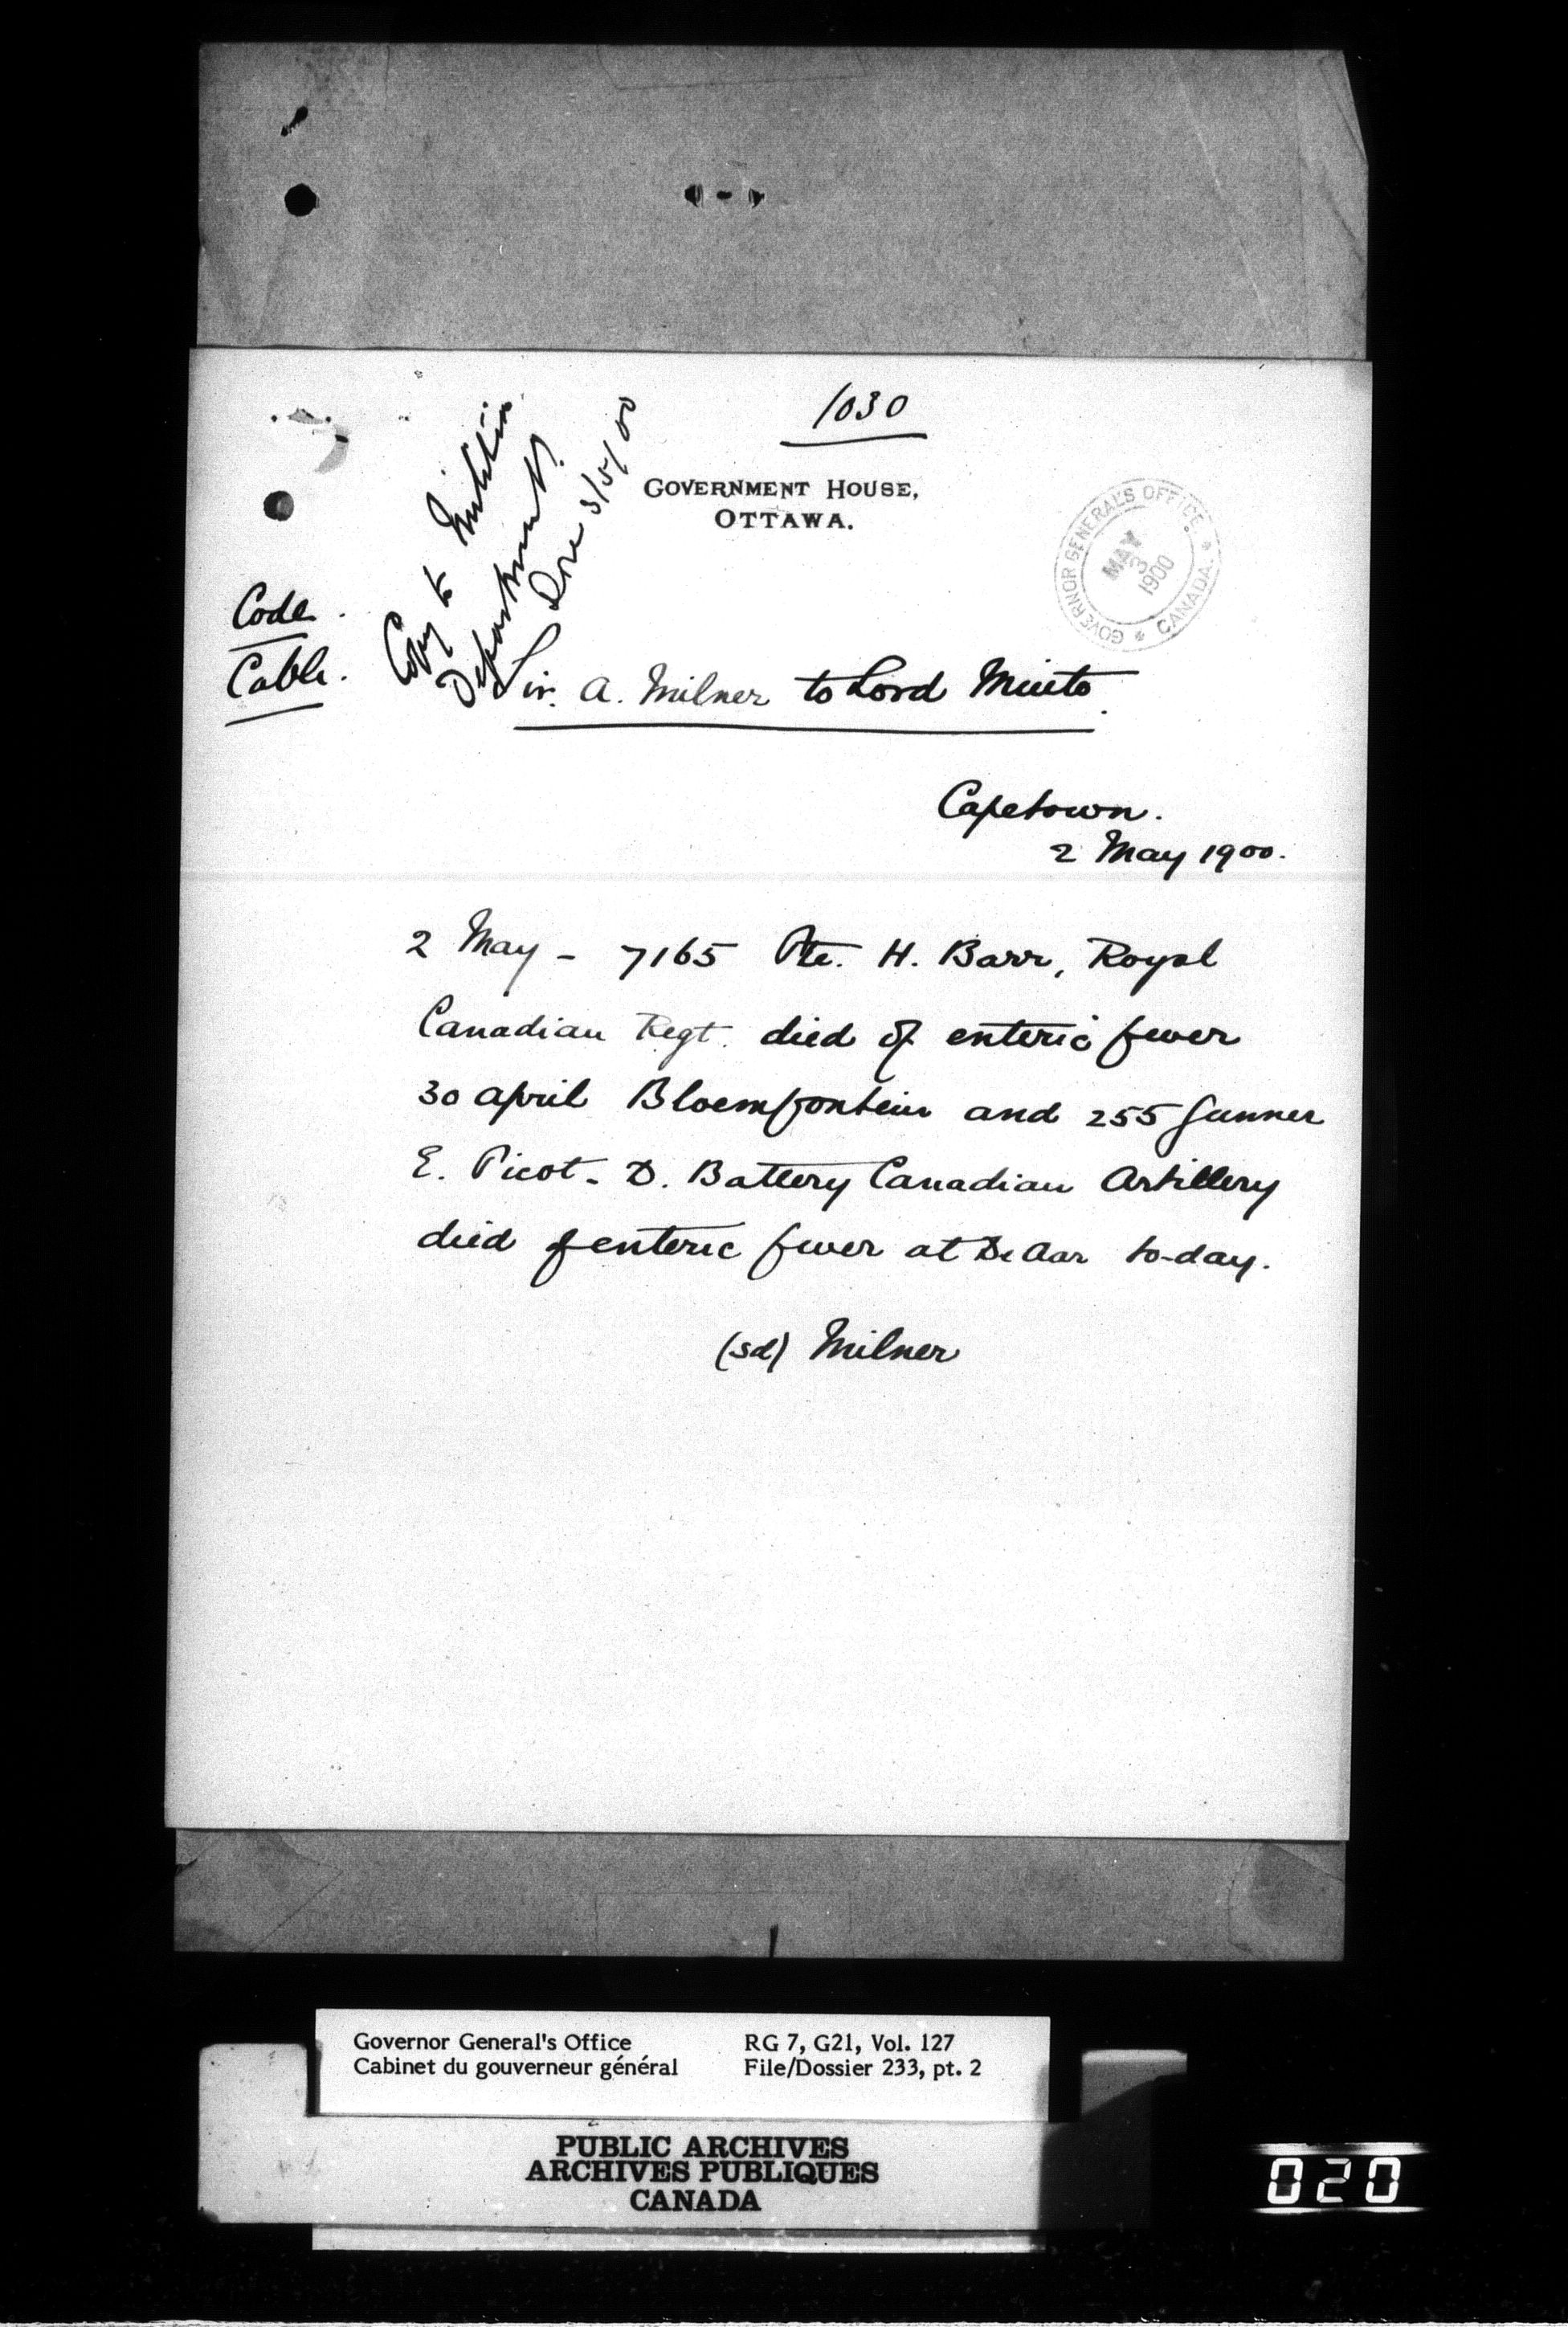 1030
GOVERNMENT HOUSE,
OTTAWA.
GOVERNOR GENERAL'S OFFICE * CANADA. *
MAY
3
1900
Copy to Militia
Department.
Done 3/5/00
Code.
Cable.
Sir. A. Milner to Lord Minto.
Capetown.
2 May 1900.
2 May - 7165 Pte. H. Barr, Royal
Canadian Regt. died of enteric fever
30 April Bloemfontein and 255 Gunner
E. Picot - D. Battery Canadian Artillery
died of enteric fever at De Aar to-day.
(sd) Milner
Governor General's Office RG 7, G21, Vol. 127
Cabinet du gouverneur général File/Dossier 233, pt. 2
PUBLIC ARCHIVES
ARCHIVES PUBLIQUES
CANADA
020